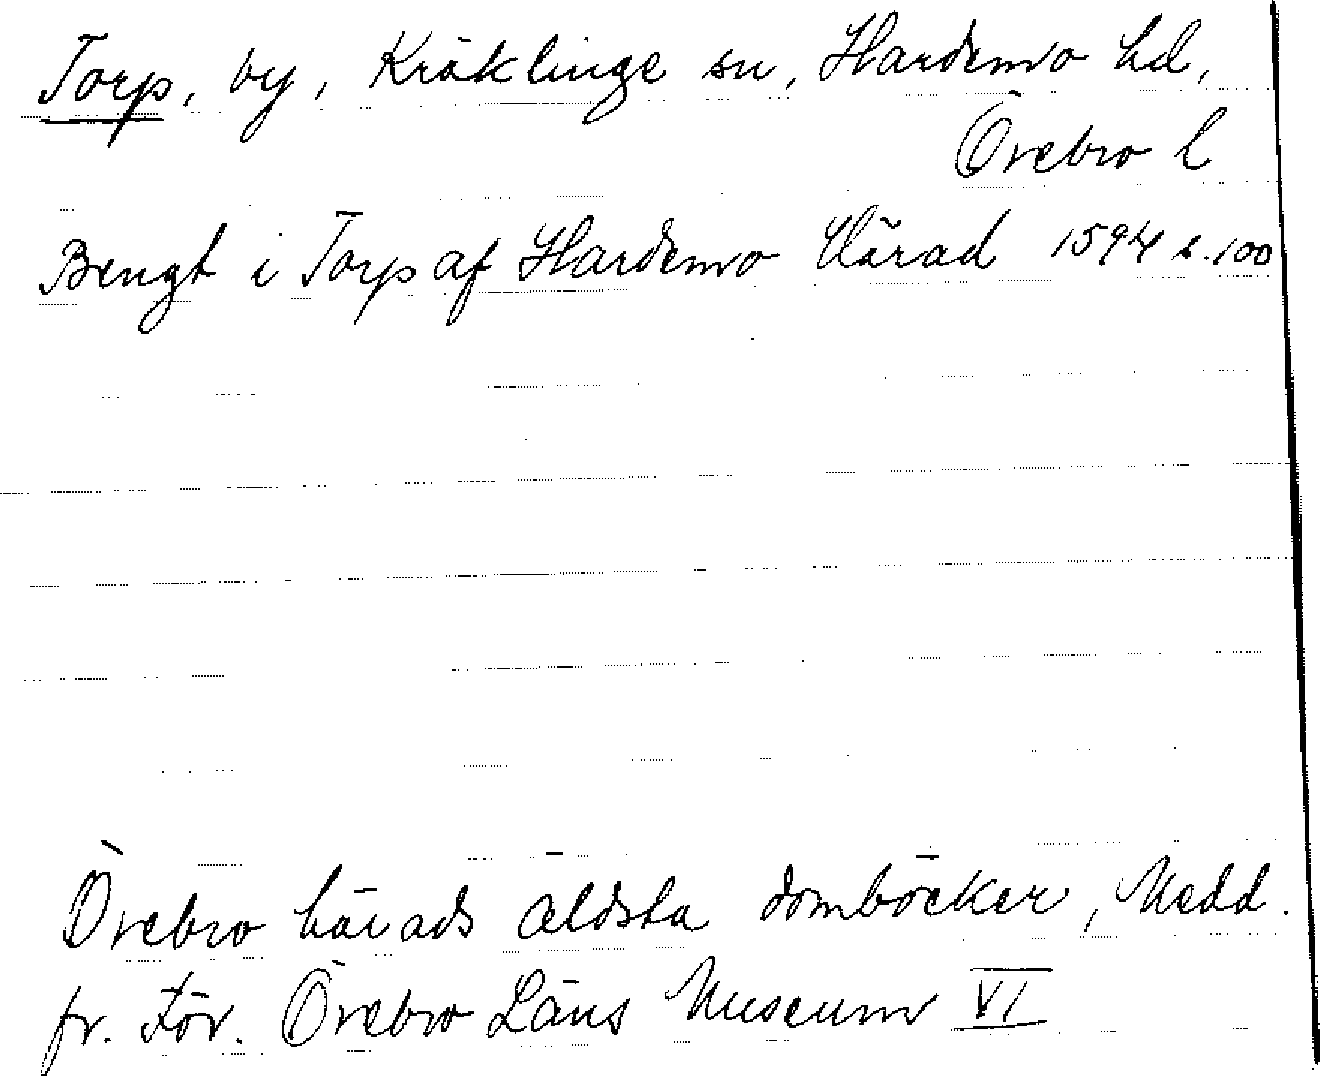 Torp, by, Kräklinge sn, Hardemo hd,
Örebro l
Bengt i Torp af Hardemo Härad 1594 s. 100
Örebro härads äldsta domböcker, Medd.
fr. För. Örebro Läns Museum VI